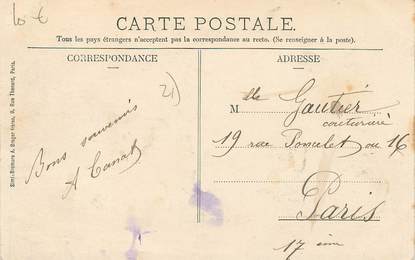 10 €
CARTE POSTALE.
Tous les pays étrangers n'acceptent pas la correspondance au recto. (Se renseigner à la poste).
CORRESPONDANCE
ADRESSE
21)
Bons souvenirs
A Canat
Mlle Gautier
couturière
19 rue Poncelet ou 16
Paris
17 ème
Simi-Bromure A. Breger frères, 9, Rue Thénard, Paris.